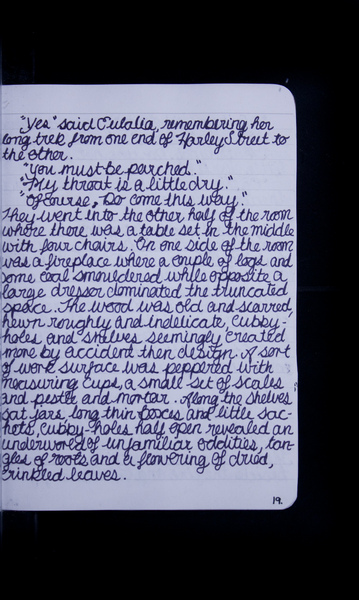 "Yes" said Eulalia, remembering her
long trek from one end of Harley Street to
the other.
"You must be parched."
"My throat is a little dry."
"Of course. Do come this way."
They went into the other half of the room
where there was a table set in the middle
with four chairs. On one side of the room
was a fireplace where a couple of logs and
some coal smouldered while opposite a
large dressor dominated the truncated
space. The wood was old and scarred,
hewn roughly and indelicate, cubby-
holes and shelves seemingly created
more by accident then design. A sort
of work surface was peppered with
measuring cups, a small set of scales
and pestle and mortar. Along the shelves
sat jars, long thin boxes and little sac-
hets, cubby-holes half open revealed an
underworld of unfamiliar oddities, tan-
gles of roots and a flowering of dried,
crinkled leaves.
19.